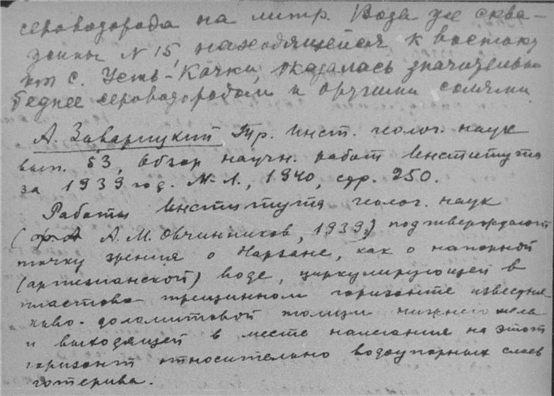 сероводорода на литр. Вода же сква-
жины N 15, находящейся к востоку
от с. Усть-Качки, оказалась значительно
беднее сероводородом и другими солями
А. Заварицкий Тр. Инст. геолог. наук
вып. 53, обзор научн. работ Института
за 1939 год. М.-Л., 1940, стр. 250.
Работы Института геолог. наук
( А.М. Овчинников, 1939г) подтверждают
точку зрения о Нарзане, как о напорной
(артезианской) воде, циркулирующей в
пластово трещинном горизонте известня-
ково-доломитовой толщи нижнего мела
и выходящей в месте налегания на этот
горизонт относительно водоупорных слоев
готерива.